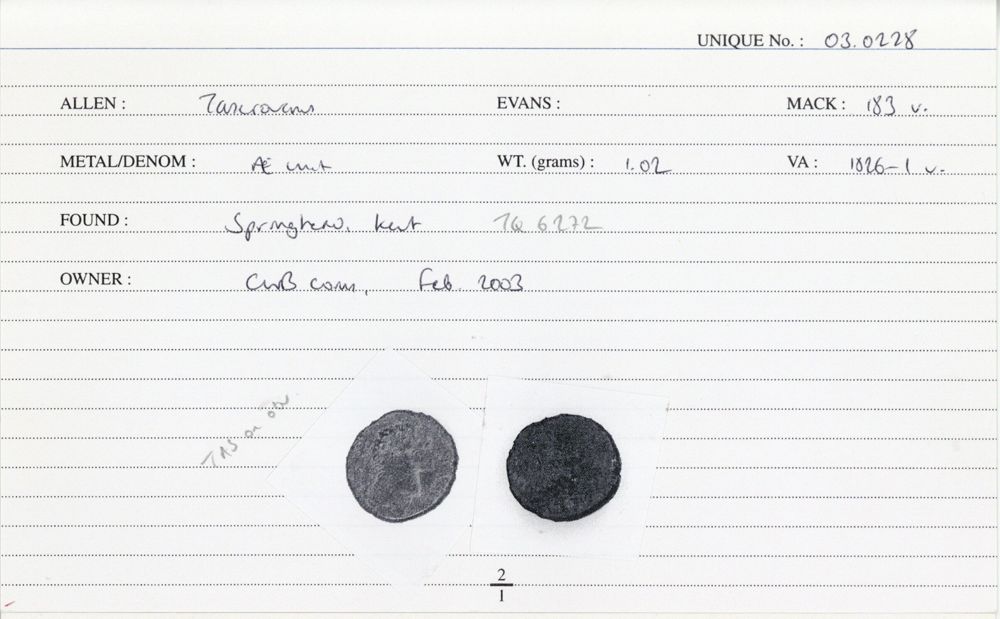 UNIQUE No. : 03.0228
ALLEN : Tasciovanus EVANS : MACK : 183 v.
METAL/DENOM : Æ unit WT. (grams) : 1.02 VA : 1826-1 v.
FOUND : Springhead, Kent TQ 6272
OWNER : CWB coins, Feb 2003
TAS on obv
2
1